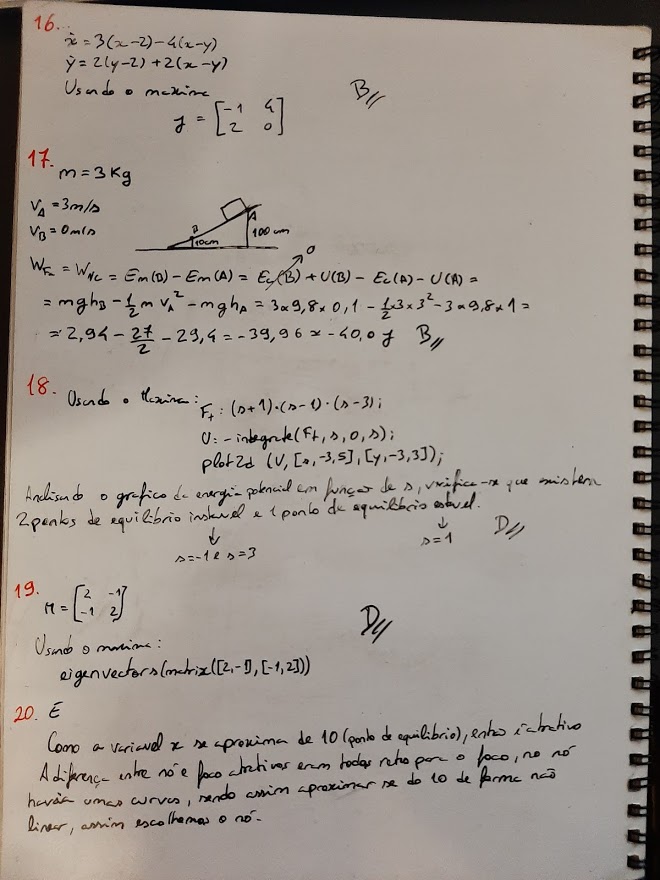 16.
ẋ = 3(x-2)-4(x-y)
ẏ = 2(y-2)+2(x-y)
Usando o maxima
B//
J = [-1 4
2 0]
17. m = 3 Kg
V_A = 3m/s
V_B = 0m/s
B A
10cm 100cm
W_Fc = W_NC = Em(B) - Em(A) = Ec(B) + U(B) - Ec(A) - U(A) =
0
= mgh_B - 1/2 m V_A² - mgh_A = 3×9,8×0,1 - 1/2 3×3² - 3×9,8×1 =
= 2,94 - 27/2 - 29,4 = -39,96 ≈ -40,0 J B//
18. Usando o Maxima: Ft: (s+1)·(s-1)·(s-3);
U: -integrate(Ft, s, 0, s);
plot2d (U, [s,-3,5], [y,-3,3]);
Analisando o grafico da energia potencial em função de s, verifica-se que existem
2 pontos de equilibrio instavel e 1 ponto de equilibrio estavel.
↓ ↓
s=-1 e s=3 s=1 D//
19.
M = [2 -1
-1 2]
D//
Usando o maxima:
eigenvectors(matrix([2,-1],[-1,2]))
20. E
Como a variavel x se aproxima de 10 (ponto de equilibrio), então é atrativo
A diferença entre nó e foco atrativos eram todas retas para o foco, no nó
havia umas curvas, sendo assim aproximar se do 10 de forma não
linear, assim escolhemos o nó.